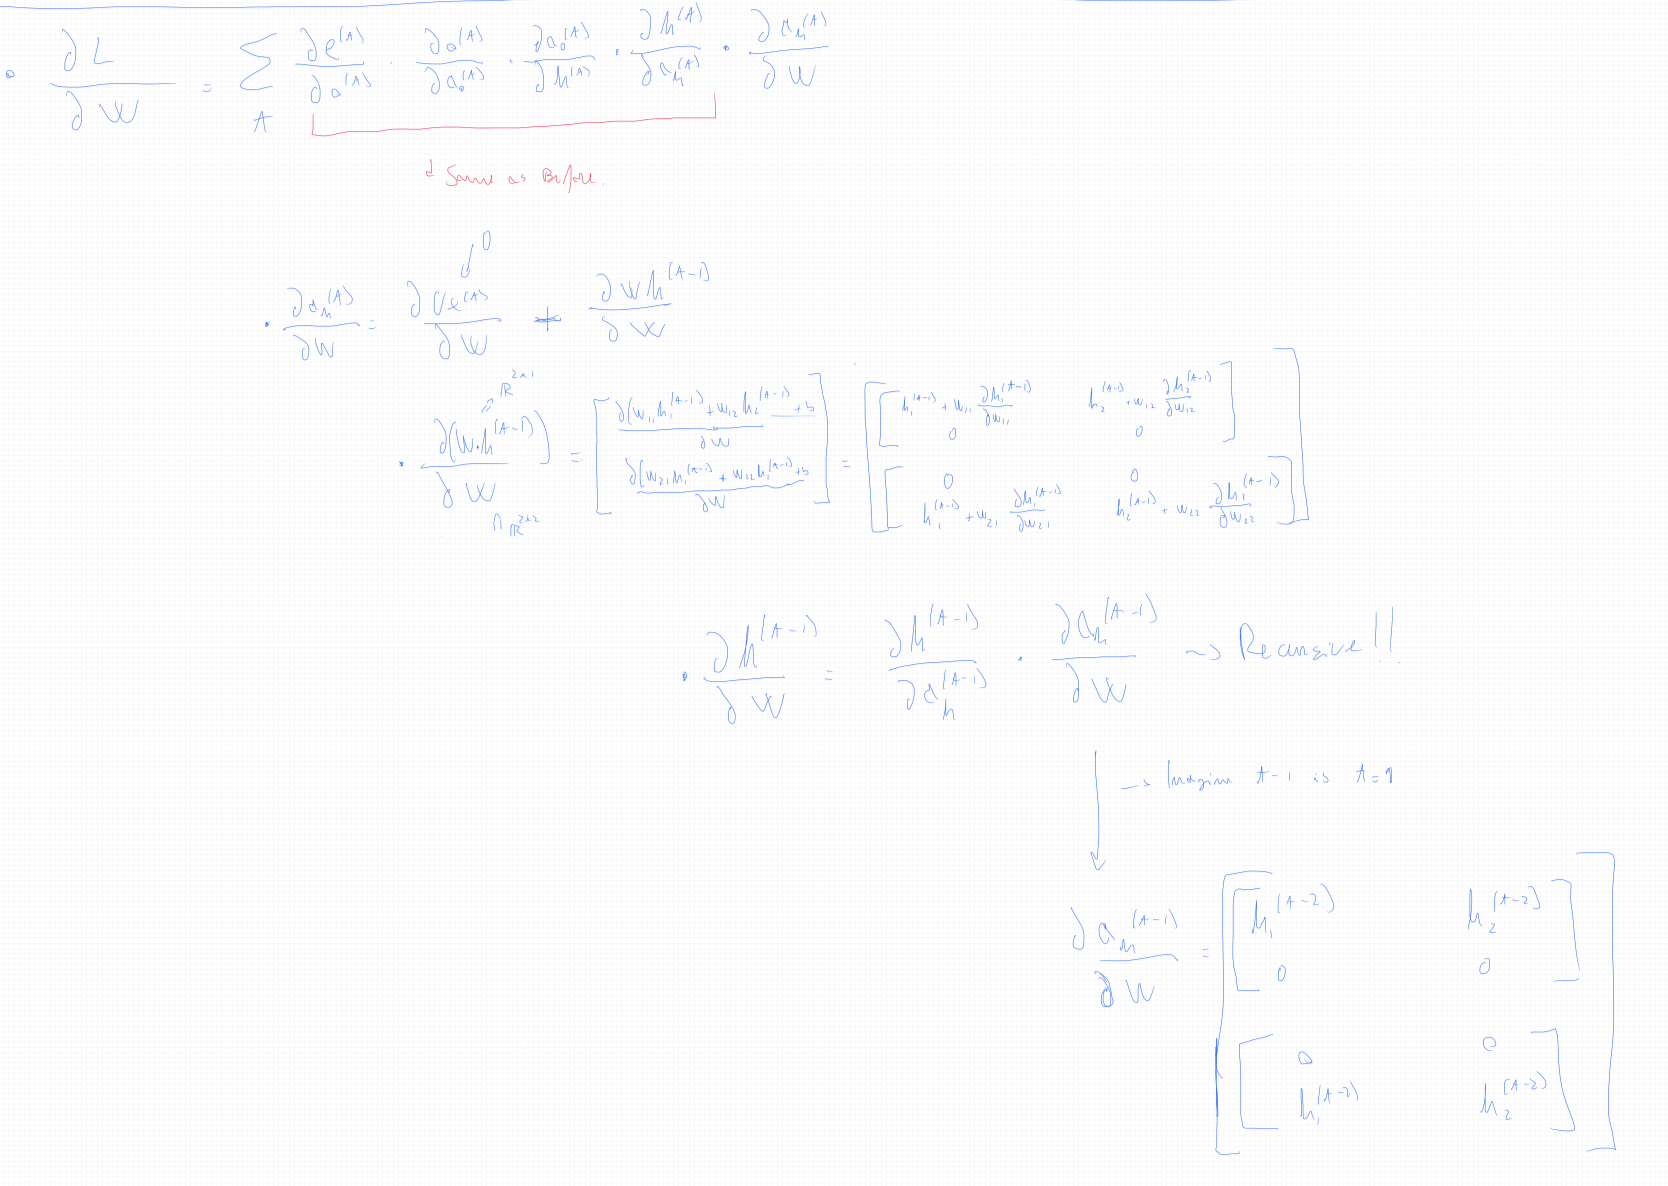 • ∂L/∂W = Σ_A ∂e^(A)/∂o^(A) · ∂o^(A)/∂a_o^(A) · ∂a_o^(A)/∂h^(A) · ∂h^(A)/∂a_h^(A) · ∂a_h^(A)/∂W
↓ Same as Before.
0
• ∂a_h^(A)/∂W = ∂Ux^(A)/∂W + ∂Wh^(A-1)/∂W
ℝ^2x1
• ∂(W·h^(A-1))/∂W = [ ∂(w_11 h_1^(A-1) + w_12 h_2^(A-1) + b/∂W ; ∂(w_21 h_1^(A-1) + w_22 h_1^(A-1) + b/∂W ] = [ [ h_1^(A-1) + w_11 ∂h_1^(A-1)/∂w_11 , h_2^(A-1) + w_12 ∂h_2^(A-1)/∂w_12 ; 0 , 0 ] ; [ 0 , 0 ; h_1^(A-1) + w_21 ∂h_1^(A-1)/∂w_21 , h_2^(A-1) + w_22 ∂h_2^(A-1)/∂w_22 ] ]
∩ ℝ^2x2
• ∂h^(A-1)/∂W = ∂h^(A-1)/∂a_h^(A-1) · ∂a_h^(A-1)/∂W → Recursive!!
→ Imagine A-1 is A=1
∂a_h^(A-1)/∂W = [ [ h_1^(A-2) , h_2^(A-2) ; 0 , 0 ] ; [ 0 , 0 ; h_1^(A-2) , h_2^(A-2) ] ]